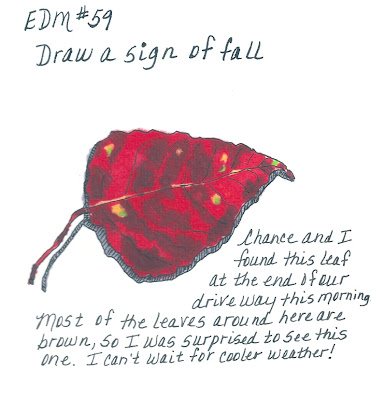 EDM #59
Draw a sign of fall
Chance and I
found this leaf
at the end of our
driveway this morning
Most of the leaves around here are
brown, so I was surprised to see this
one. I can't wait for cooler weather!